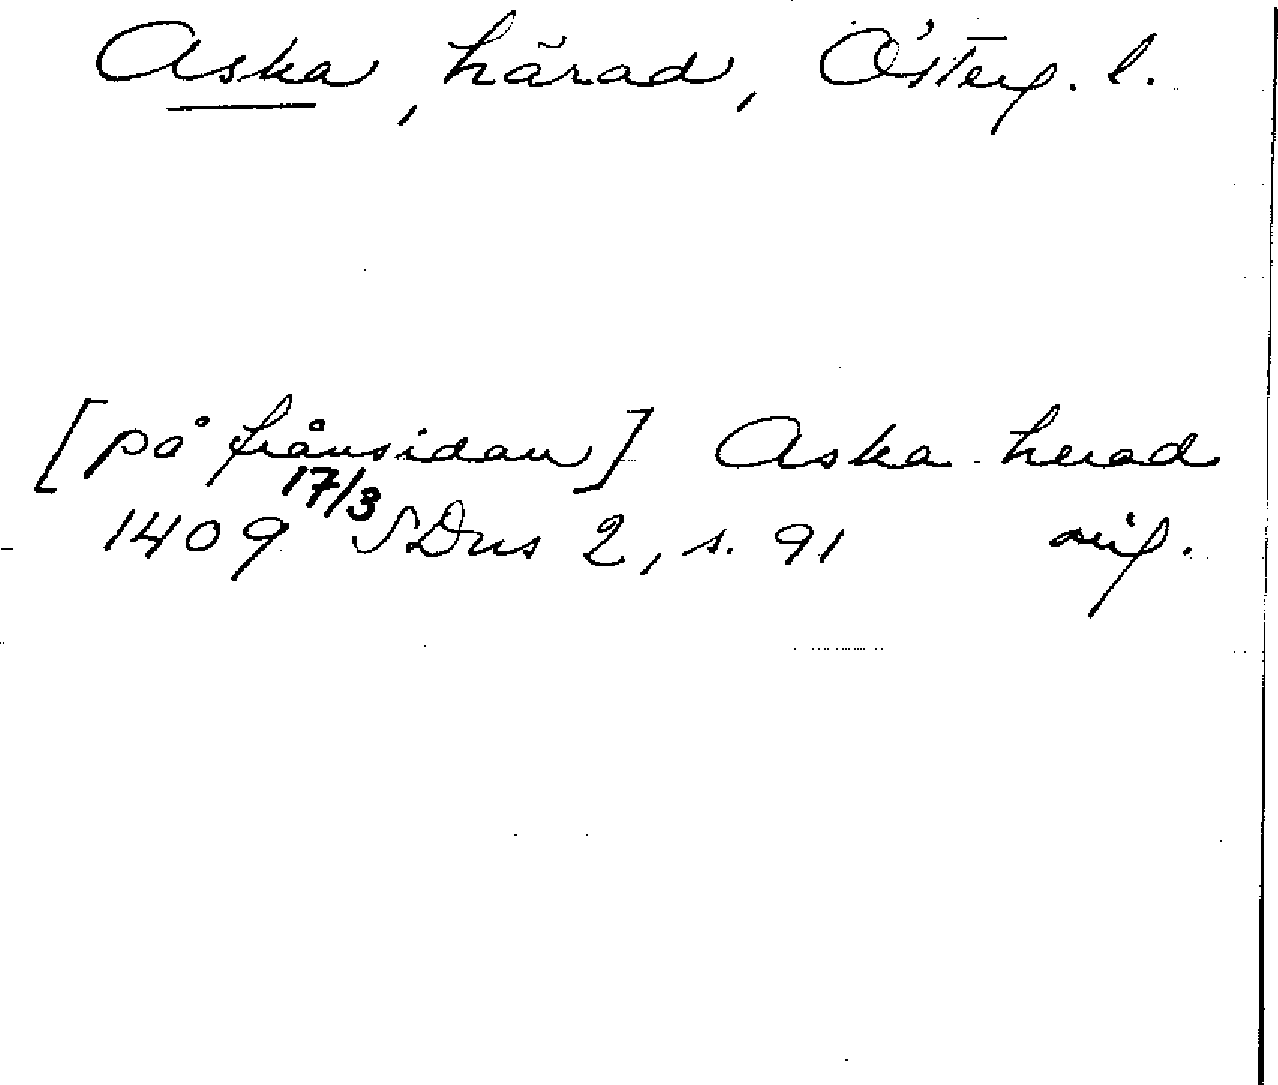 Aska, härad, Österg. l.
[på frånsidan] Aska herad
1409 17/3 SDns 2, s. 91 sig.